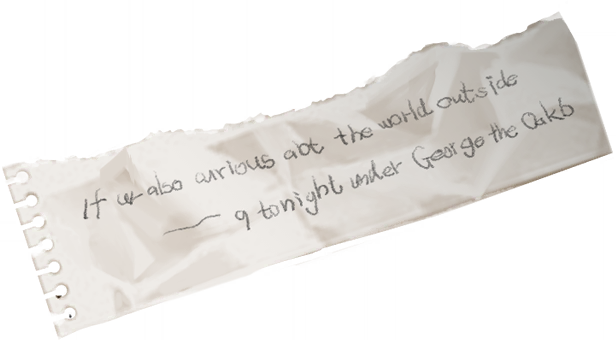 If ur also curious abt the world outside
— 9 tonight under George the Oakb